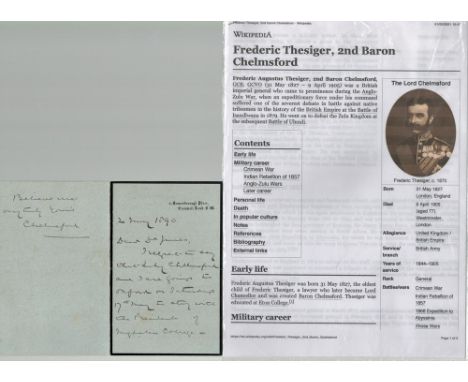 Believe me
very truly yours
Chelmsford
2 May 1890
Dear Dr
I regret to say
that Lady Chelmsford
and I are going to
on Saturday
17 May to stay with
the President of
College -
WIKIPEDIA
Frederic Thesiger, 2nd Baron
Chelmsford
Frederic Augustus Thesiger, 2nd Baron Chelmsford,
GCB, GCVO (31 May 1827 – 9 April 1905) was a British
imperial general who came to prominence during the Anglo-
Zulu War, when an expeditionary force under his command
suffered one of the severest defeats in battle against native
tribesmen in the history of the British Empire at the Battle of
Isandlwana in 1879. He went on to defeat the Zulu Kingdom at
the subsequent Battle of Ulundi.
Contents
Early life
Military career
Crimean War
Indian Rebellion of 1857
Anglo-Zulu Wars
Later career
Personal life
Death
In popular culture
Notes
References
Bibliography
External links
Early life
Frederic Augustus Thesiger was born 31 May 1827, the eldest
child of Frederic Thesiger, a lawyer who later became Lord
Chancellor and was created Baron Chelmsford. Thesiger was
educated at Eton College.
Military career
The Lord Chelmsford
Frederic Thesiger, c. 1870
Born 31 May 1827
London, England
Died 9 April 1905
(aged 77)
Westminster,
London
Allegiance United Kingdom /
British Empire
Service/ British Army
branch
Years of 1844–1905
service
Rank General
Battles/wars Crimean War
Indian Rebellion of
1857
1868 Expedition to
Abyssinia
Page 1 of 6